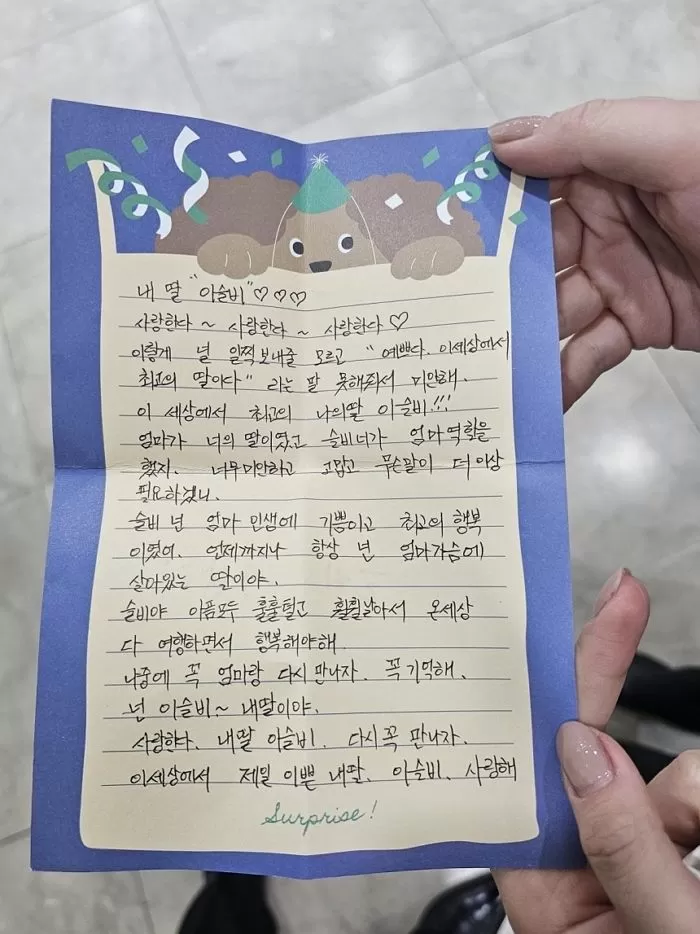 내 딸 "아슬비"♡♡♡
사랑한다 ~ 사랑한다 ~ 사랑한다 ♡
이렇게 널 일찍 보내줄 모르고 "예쁘다. 이세상에서
최고의 딸이다" 라는 말 못해줘서 미안해.
이 세상에서 최고의 나의딸 이슬비!!!
엄마가 너의 딸이였고 슬비너가 엄마역할을
했지. 너무미안하고 고맙고 무슨말이 더이상
필요하겠니.
슬비 넌 엄마 인생에 기쁨이고 최고의 행복
이였어. 언제까지나 항상 넌 엄마가슴에
살아있는 딸이야.
슬비야 아픔모두 훌훌털고 훨훨날아서 온세상
다 여행하면서 행복해야해.
나중에 꼭 엄마랑 다시 만나자. 꼭기억해.
넌 이슬비~ 내딸이야.
사랑한다. 내딸 이슬비. 다시꼭 만나자.
이세상에서 제일 이쁜 내딸. 이슬비. 사랑해
Surprise!